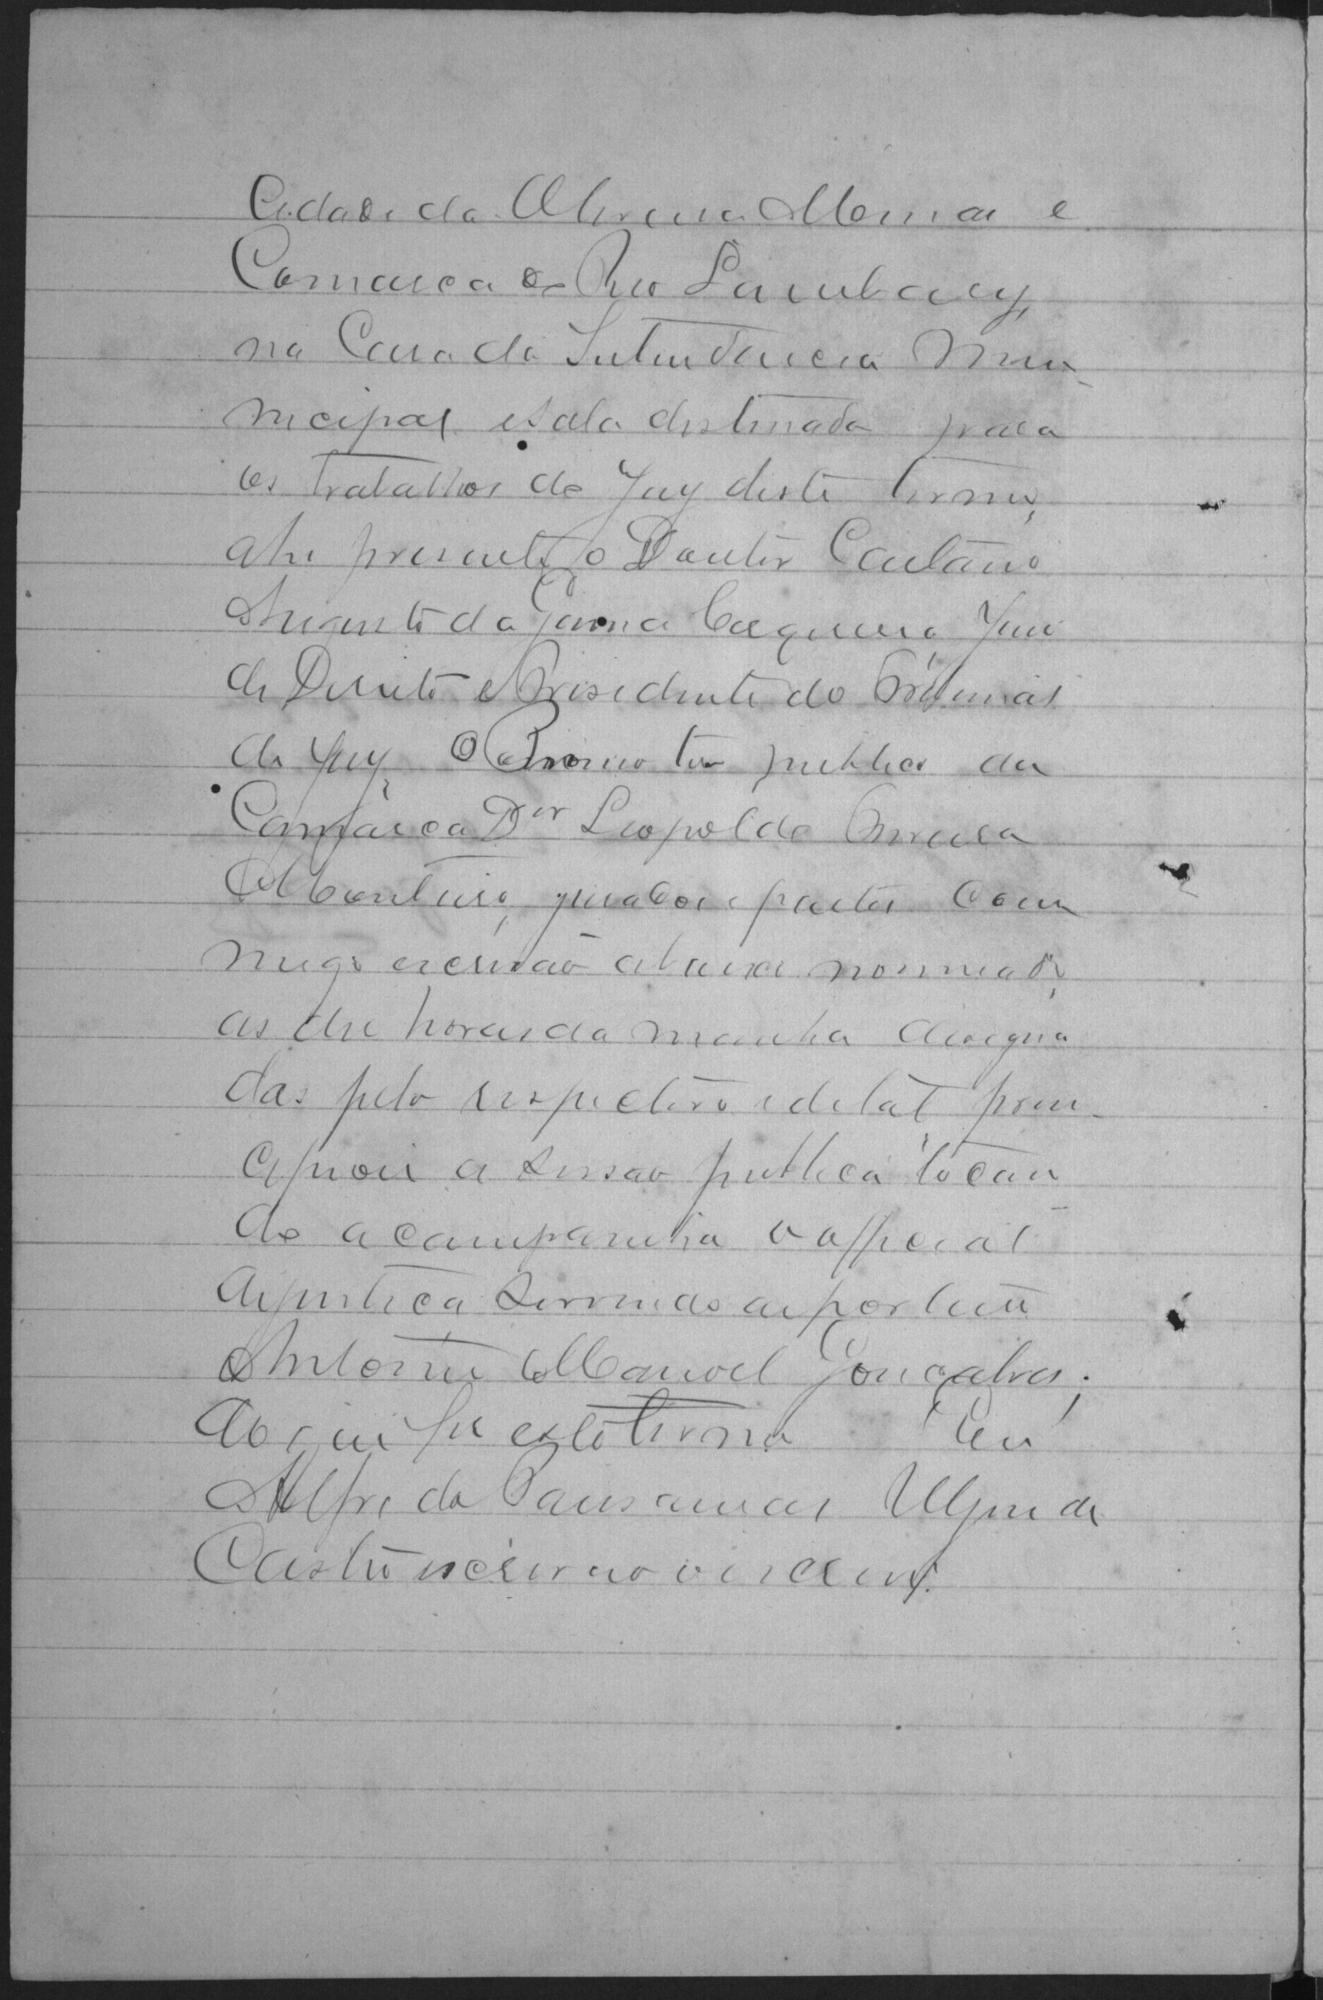 Cidade da Oliveira Mamar e
Comarca do Rio Lambary,
na Casa da Intendencia Mu-
nicipal e sala destinada para
os trabalhos do Jury deste termo,
ahi presente o Doutor Caetano
Augusto da Gama Cerqueira Juiz
de Direito e Presidente do Tribunal
do Jury, o Promotor publico da
Comarca Dor Leopoldo Correia
Monteiro, jurados e partes com
migo escrivão abaixo nomeado,
as dez horas da manhã designa
das pelo respectivo edital prin-
cipiou a sessão publica tocan
do a campainha o official
de justiça servindo de porteiro
Antonio Manoel Gonçalves;
do que fiz este termo Eu
Alfredo Pausanias Alves de
Castro escrivão o escrevi.